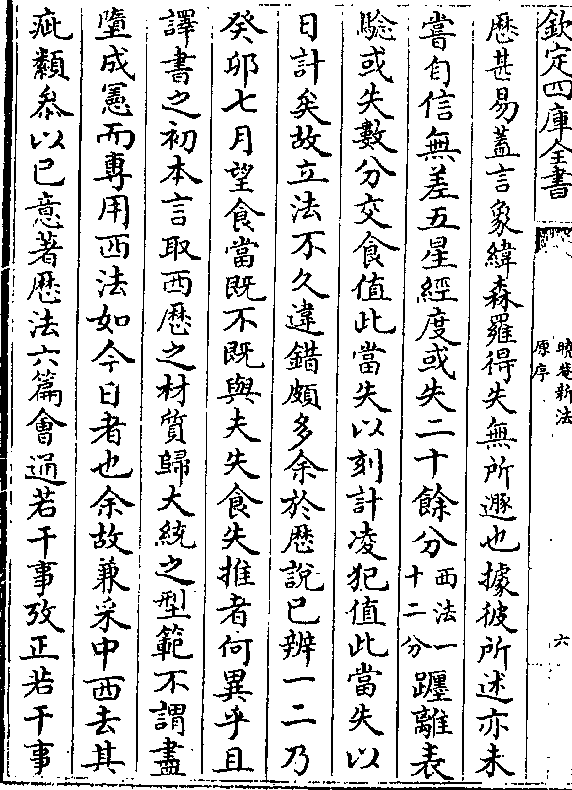 欽定四庫全書
曉菴新法
原序
六
厯甚易蓋言象緯森羅得失無所遯也據彼所述亦未
嘗自信無差五星經度或失二十餘分西法一十二分躔離表
驗或失數分交食值此當失以刻計凌犯值此當失以
日計矣故立法不久違錯頗多余於厯說已辨一二乃
癸卯七月望食當既不既與夫失食失推者何異乎且
譯書之初本言取西厯之材質歸大統之型範不謂盡
墮成憲而專用西法如今日者也余故兼采中西去其
疵纇叅以已意著厯法六篇會通若干事攷正若干事